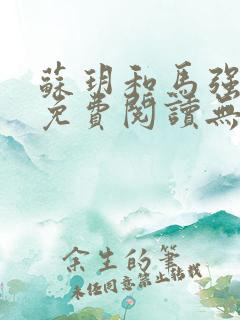 蘇玥和馬強
免費閱讀無
余生的筆
未经同意禁止转载